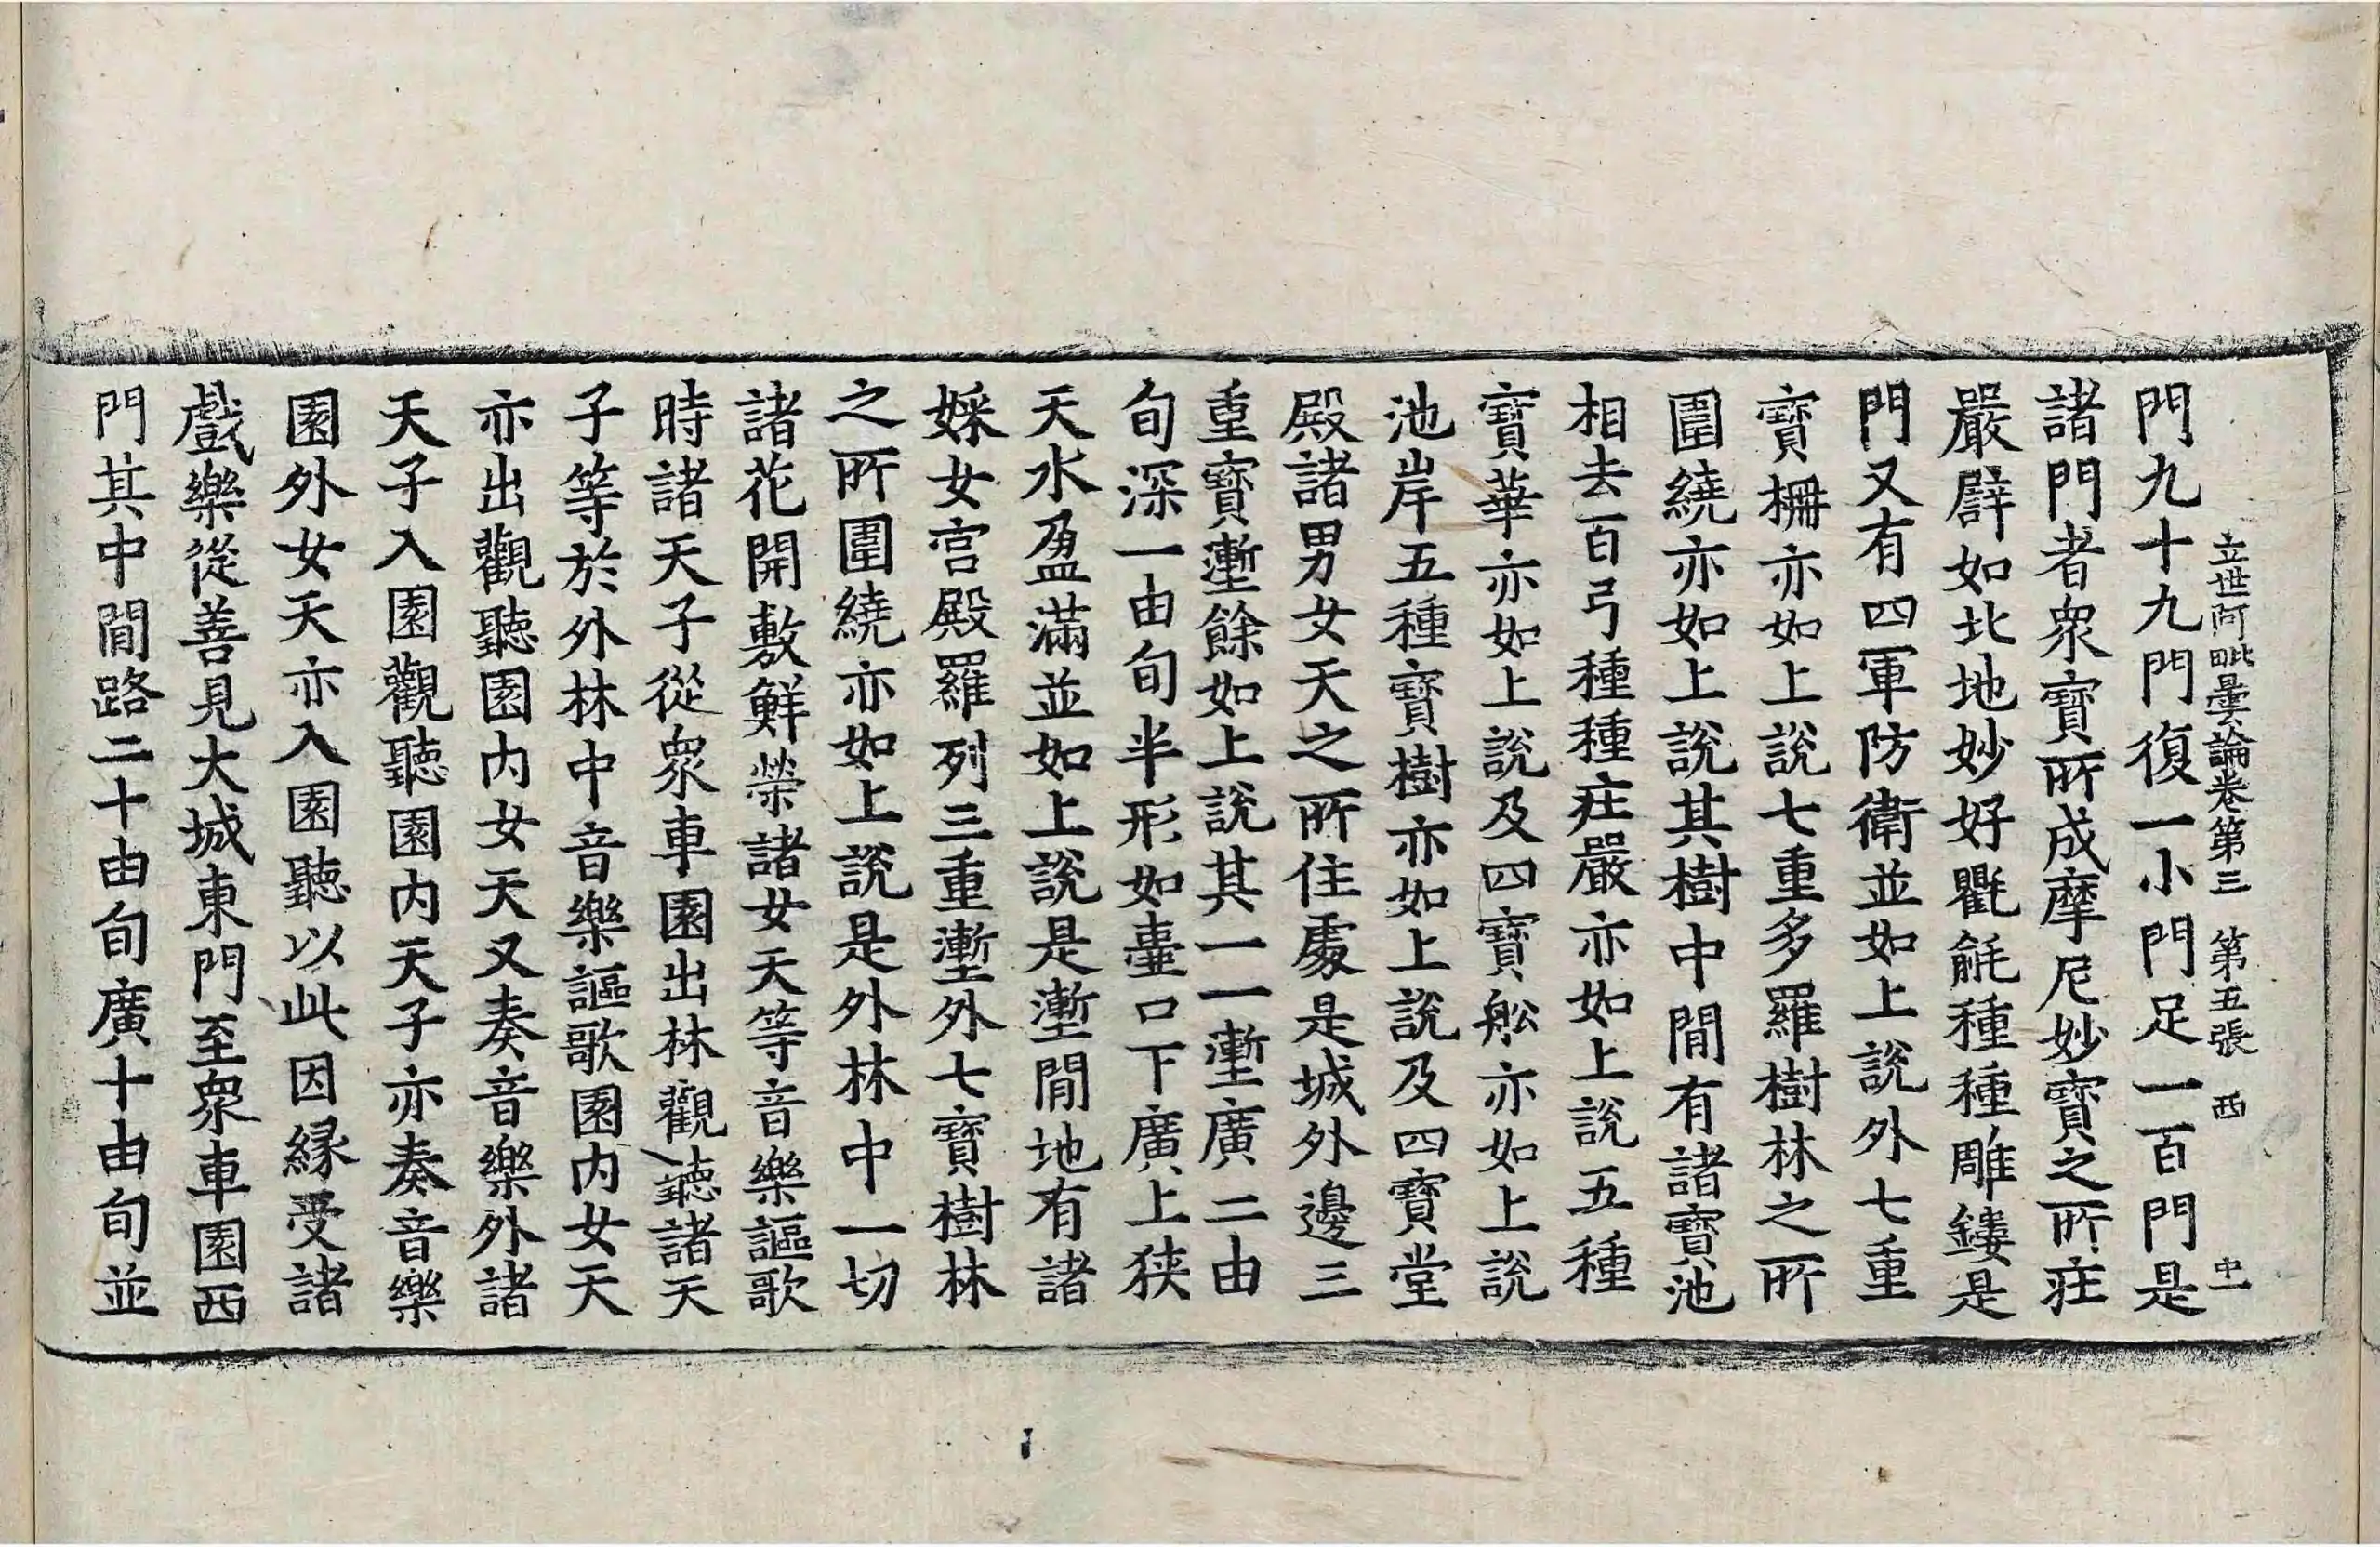 立世阿毗曇論卷第三 第五張 西 中一
門九十九門復一小門足一百門是
諸門者衆寶所成摩尼妙寶之所莊
嚴譬如北地妙好氍毹種種雕鏤是
門又有四軍防衛並如上說外七重
寶柵亦如上說七重多羅樹林之所
圍繞亦如上說其樹中間有諸寶池
相去百弓種種莊嚴亦如上說五種
寶華亦如上說及四寶舩亦如上說
池岸五種寶樹亦如上說及四寶堂
殿諸男女天之所住處是城外邊三
重寶壍餘如上說其一一壍廣二由
旬深一由旬半形如壺口下廣上狹
天水盈滿並如上說是壍間地有諸
婇女宮殿羅列三重壍外七寶樹林
之所圍繞亦如上說是外林中一切
諸花開敷鮮榮諸女天等音樂謳歌
時諸天子從衆車園出林觀聽諸天
子等於外林中音樂謳歌園内女天
亦出觀聽園内女天又奏音樂外諸
天子入園觀聽園内天子亦奏音樂
園外女天亦入園聽以此因縁受諸
戲樂從善見大城東門至衆車園西
門其中間路二十由旬廣十由旬並